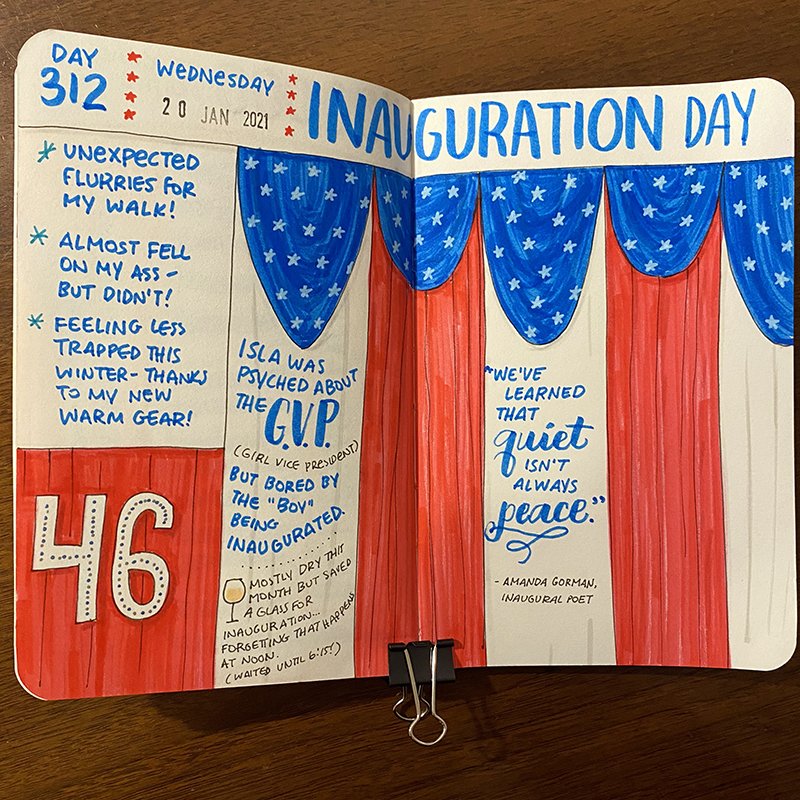 DAY
312
WEDNESDAY
20 JAN 2021
INAUGURATION DAY
UNEXPECTED
FLURRIES FOR
MY WALK!
ALMOST FELL
ON MY ASS -
BUT DIDN'T!
FEELING LESS
TRAPPED THIS
WINTER - THANKS
TO MY NEW
WARM GEAR!
46
ISLA WAS
PSYCHED ABOUT
THE G.V.P.
(GIRL VICE PRESIDENT)
BUT BORED BY
THE "BOY"
BEING
INAUGURATED.
MOSTLY DRY THIS
MONTH BUT SAVED
A GLASS FOR
INAUGURATION...
FORGETTING THAT HAPPENS
AT NOON.
(WAITED UNTIL 6:15!)
"WE'VE
LEARNED
THAT
quiet
ISN'T
ALWAYS
peace."
- AMANDA GORMAN,
INAUGURAL POET